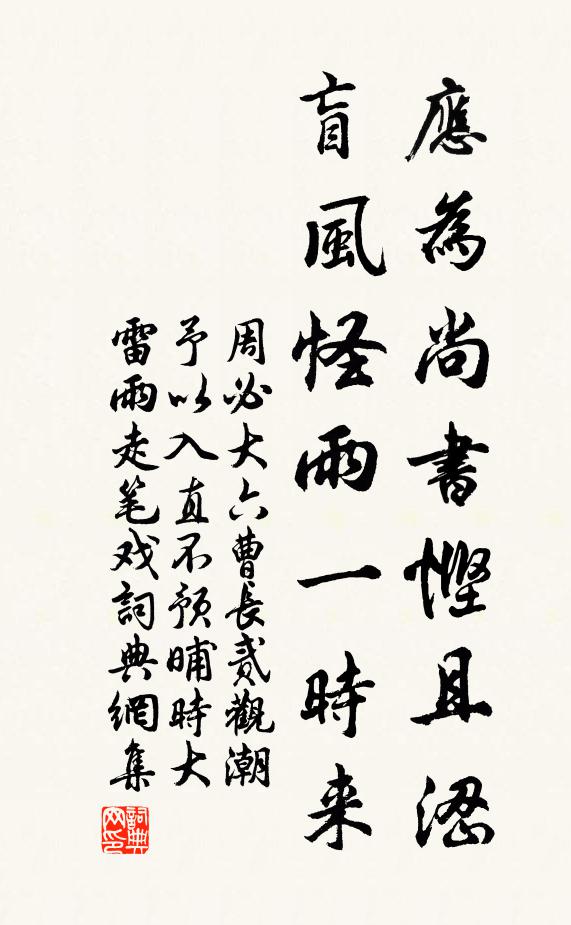 應為尚書慳且澀
盲風怪雨一時来
周必大六曹長貳觀潮
予以入直不預晡時大
雷雨走笔戏詞典網集
詞典网印